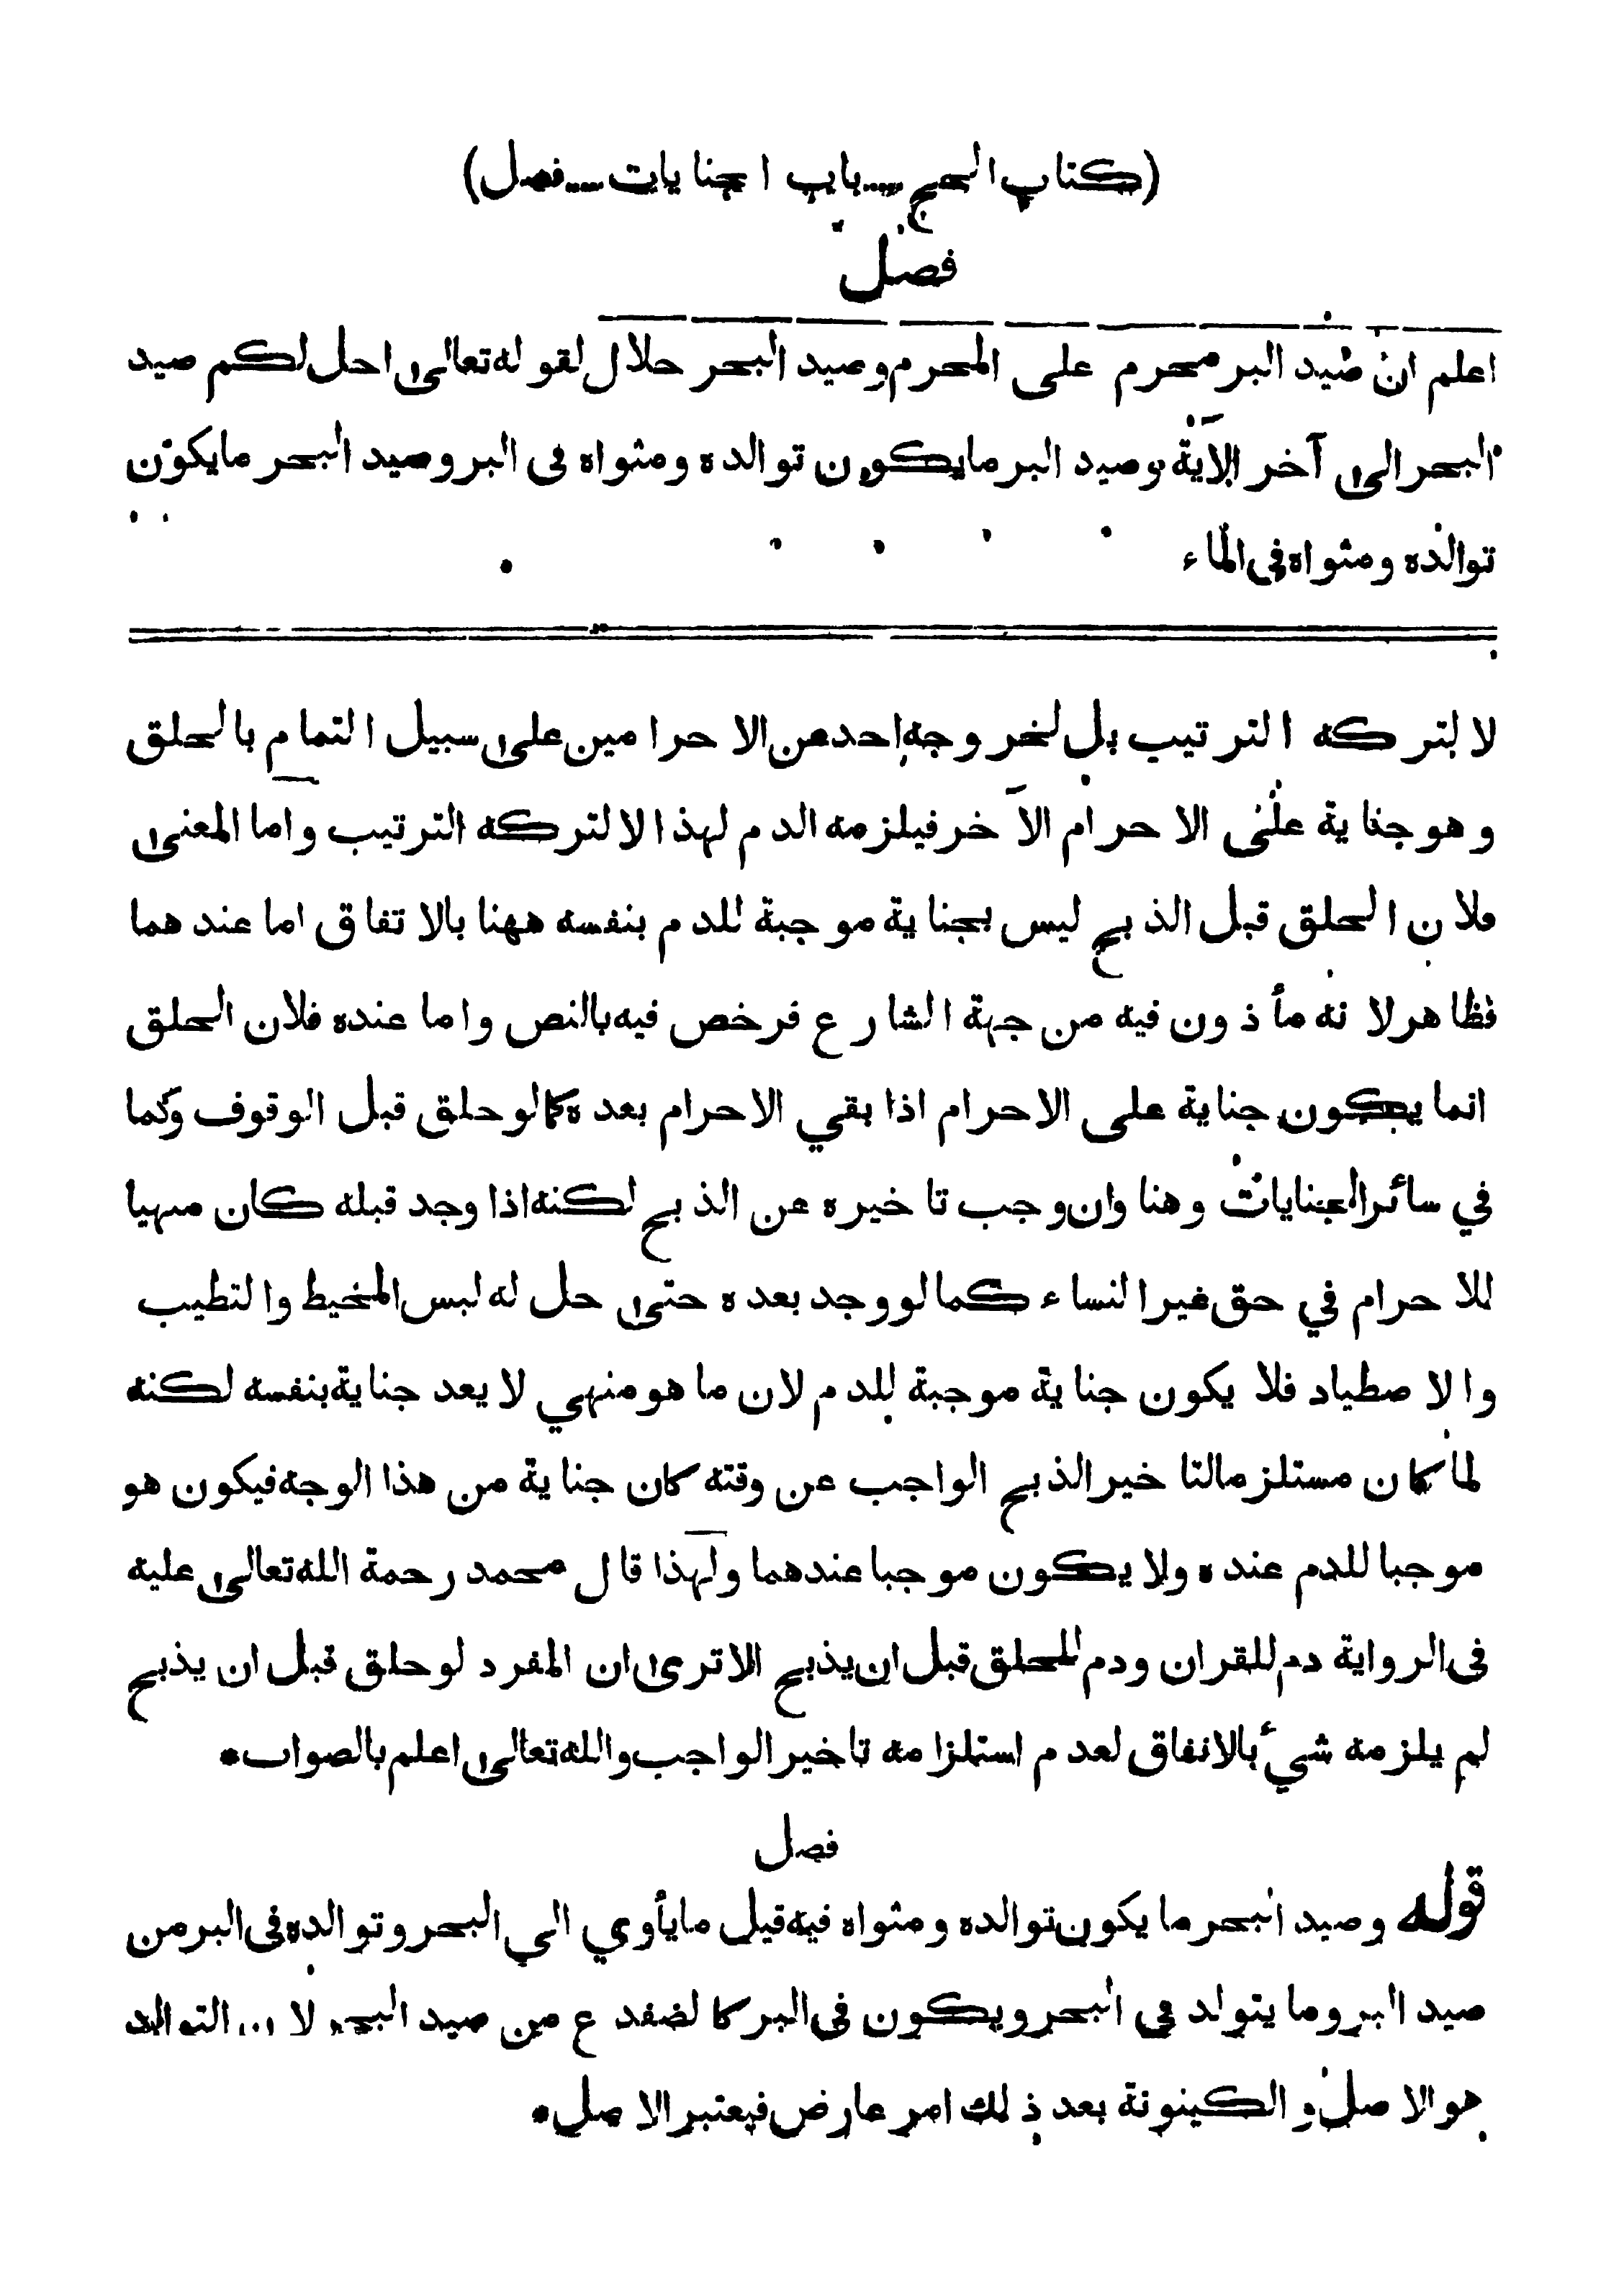 (كتاب الحج ــ باب الجنايات ــ فصل)
فصل
اعلم ان صيد البر محرم على المحرم وصيد البحر حلال لقوله تعالى احل لكم صيد
البحر الى آخر الآية وصيد البر ما يكون توالده ومثواه فى البر وصيد البحر ما يكون
توالده ومثواه فى الماء
لا لتركه الترتيب بل لخروجه احد عن الاحرامين على سبيل التمام بالحلق
وهو جناية على الاحرام الآخر فيلزمه الدم لهذا لا لتركه الترتيب واما المعنى
فلان الحلق قبل الذبح ليس بجناية موجبة للدم بنفسه ههنا بالاتفاق اما عندهما
فظاهر لانه مأذون فيه من جهة الشارع فرخص فيه بالنص واما عنده فلان الحلق
انما يكون جناية على الاحرام اذا بقي الاحرام بعده كما لو حلق قبل الوقوف وكما
في سائر الجنايات وهنا وان وجب تاخيره عن الذبح لكنه اذا وجد قبله كان منهيا
للاحرام في حق غير النساء كما لو وجد بعده حتى حل له لبس المخيط والتطيب
والاصطياد فلا يكون جناية موجبة للدم لان ما هو منهي لا يعد جناية بنفسه لكنه
لما كان مستلزما لتاخير الذبح الواجب عن وقته كان جناية من هذا الوجه فيكون هو
موجبا للدم عنده ولا يكون موجبا عندهما ولهذا قال محمد رحمة الله تعالى عليه
فى الرواية دم للقران ودم للحلق قبل ان يذبح الا ترى ان المفرد لو حلق قبل ان يذبح
لم يلزمه شيء بالاتفاق لعدم استلزامه تاخير الواجب والله تعالى اعلم بالصواب •
فصل
قوله وصيد البحر ما يكون توالده ومثواه فيه قيل ما يأوي الي البحر وتوالده فى البر من
صيد البر وما يتولد في البحر ويكون فى البر كالضفدع من صيد البحر لان التوالد
هو الاصل و الكينونة بعد ذلك امر عارض فيعتبر الاصل •